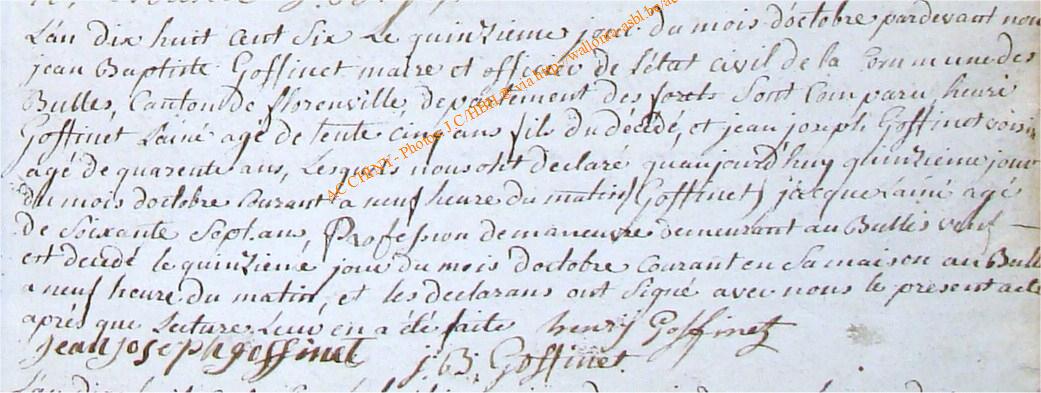 L'an dix huit cent six Le quinzieme jour du mois d'octobre pardevant nous
jean Baptiste Goffinet maire et officier de L'état civil de la Commune des
Bulles, Canton de florenville departement des forets Sont Comparu henri
Goffinet L'ainé agé de tente cinq ans fils du décédé, et jean joseph Goffinet voisin
agé de quarente ans, Lesquels nous ont declaré quaujourd'huy quinzieme jour
du mois d'octobre Courant a neuf heure du matin (Goffinet) jacque Lainé agé
de Soixante Sept ans, Profession de maneuvre demeurant au Bulles veuf
est decedé le quinzieme jour du mois d'octobre Courant en Sa maison au Bulle
a neuf heure du matin, et les declarans ont Signé avec nous le present acte
aprés que Lecture Leur en a été faite henry Goffinet
jean joseph goffinet J.B. Goffinet.
ACCHLVI - Photos J.C/HBL via http://wallonia.asbl.be/ac